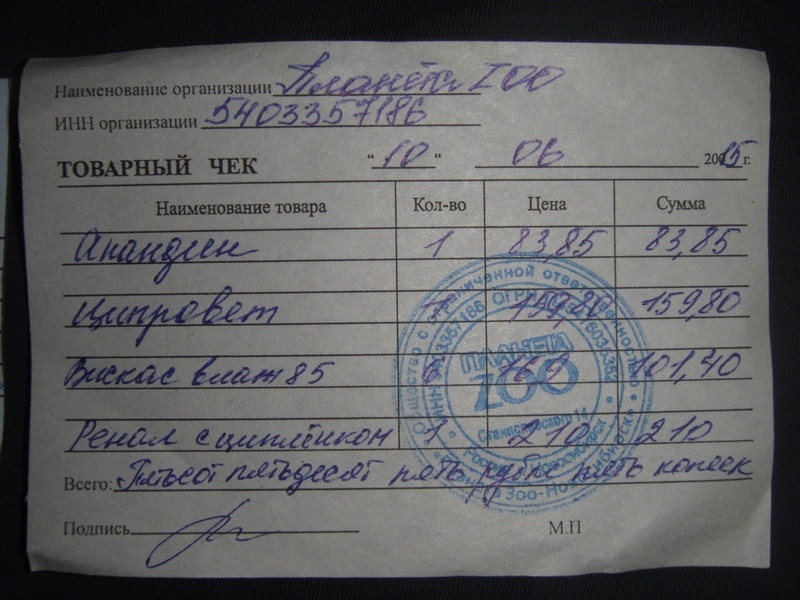 Наименование организации Планета ZOO
ИНН организации 5403357186
ТОВАРНЫЙ ЧЕК " 10 " 06 2015 г.
Наименование товара Кол-во Цена Сумма
Анандин 1 83,85 83,85
Ципровет 1 159,80 159,80
Вискас влаж 85 6 16,9 101,40
Ренал с цыплёнком 1 210 210
Всего: Пятьсот пятьдесят пять рублей пять копеек
Подпись М.П
Общество с ограниченной ответственностью
ИНН 5403357186 ОГРН
ПЛАНЕТА
ZOO
Станиславского 14
Россия Новосибирск
«Планета Зоо-Новосибирск»